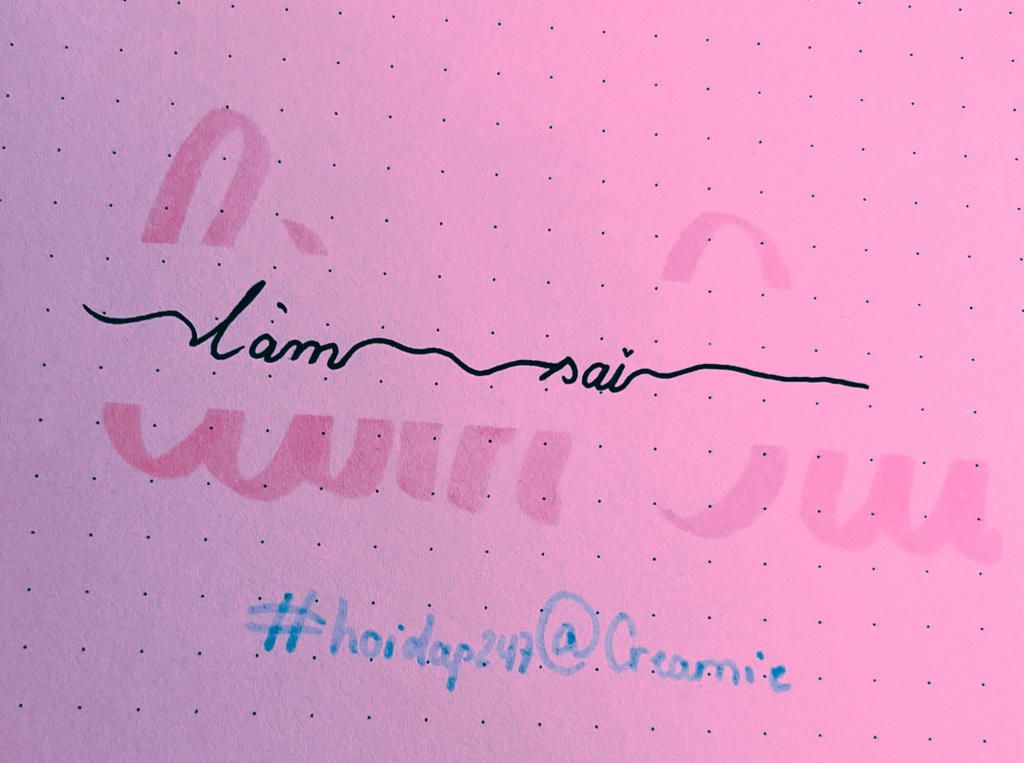 làm sai
#hoidap247@Creamie